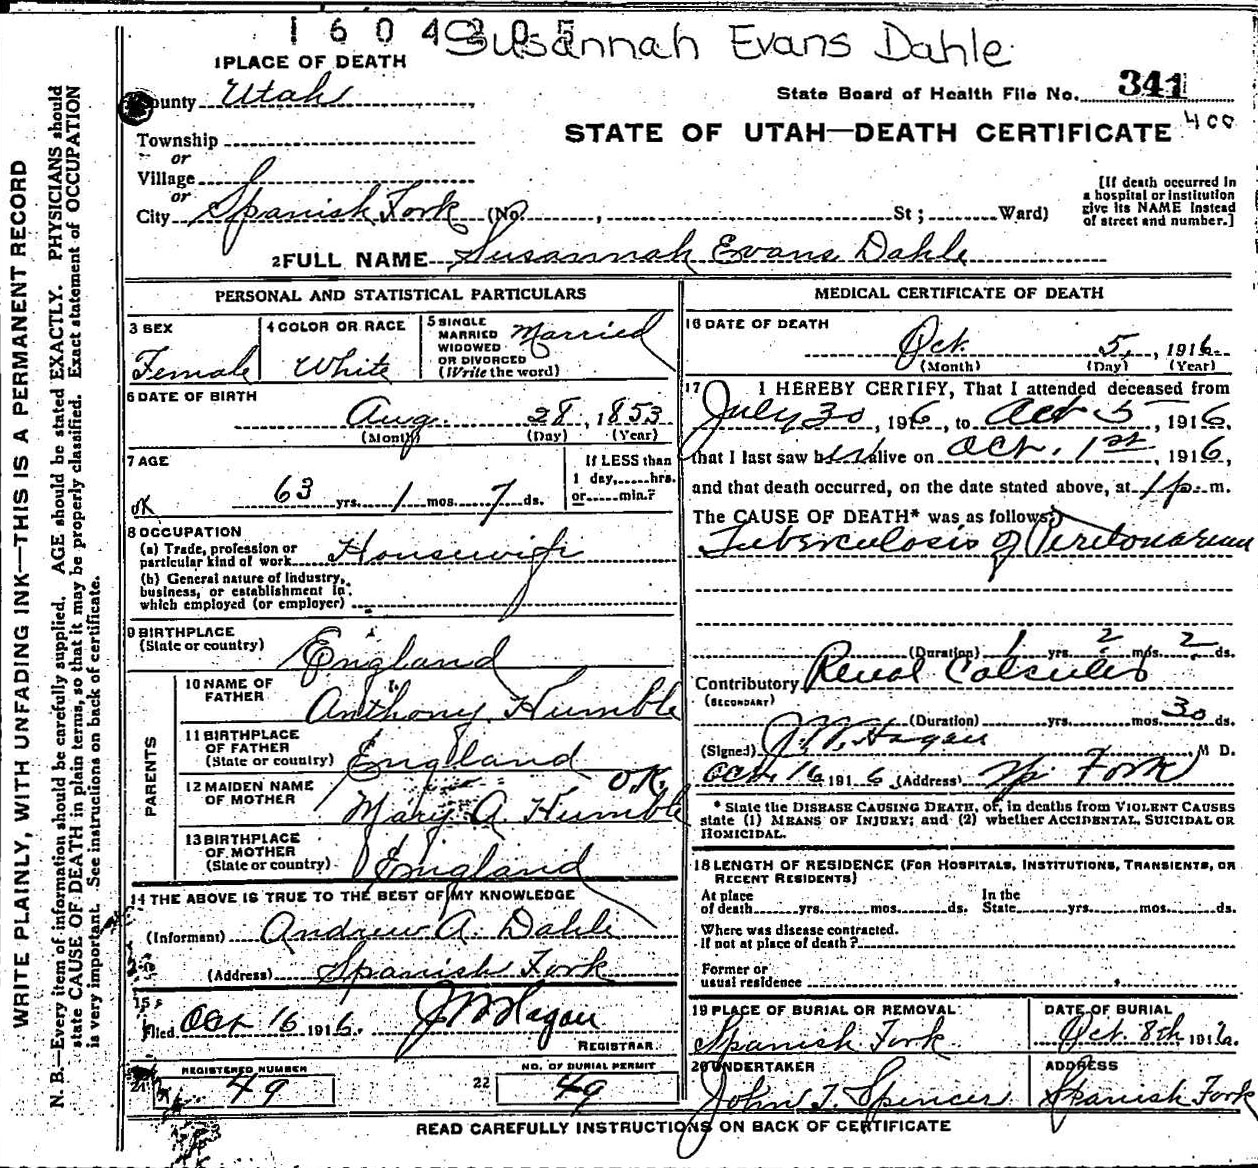 1604305
Susannah Evans Dahle
1 PLACE OF DEATH
County Utah
State Board of Health File No. 341
Township
STATE OF UTAH—DEATH CERTIFICATE 400
or
Village
or
City Spanish Fork (No. , St; Ward)
[If death occurred in
a hospital or institution
give its NAME instead
of street and number.]
2 FULL NAME Susannah Evans Dahle
PERSONAL AND STATISTICAL PARTICULARS
3 SEX
Female
4 COLOR OR RACE
White
5 SINGLE
MARRIED
WIDOWED
OR DIVORCED
(Write the word)
Married
6 DATE OF BIRTH
Aug. 28, 1853
(Month) (Day) (Year)
7 AGE
ok 63 yrs. 1 mos. 7 ds.
If LESS than
1 day, hrs.
or min.?
8 OCCUPATION
(a) Trade, profession or
particular kind of work Housewife
(b) General nature of industry,
business, or establishment in
which employed (or employer)
9 BIRTHPLACE
(State or country) England
PARENTS
10 NAME OF
FATHER
Anthony Humble
11 BIRTHPLACE
OF FATHER
(State or country) England
12 MAIDEN NAME
OF MOTHER
O.K.
Mary A. Humble
13 BIRTHPLACE
OF MOTHER
(State or country) England
14 THE ABOVE IS TRUE TO THE BEST OF MY KNOWLEDGE
(Informant) Andrew A. Dahle
(Address) Spanish Fork
15
Filed Oct 16 1916. J W Hagan
REGISTRAR
21 REGISTERED NUMBER
49
22 NO. OF BURIAL PERMIT
49
MEDICAL CERTIFICATE OF DEATH
16 DATE OF DEATH
Oct. 5, 1916
(Month) (Day) (Year)
17 I HEREBY CERTIFY, That I attended deceased from
July 30, 1916, to Oct 5, 1916,
that I last saw her alive on Oct. 1st, 1916,
and that death occurred, on the date stated above, at 1 p. m.
The CAUSE OF DEATH* was as follows:
Tuberculosis of Peritonaeum
(Duration) 1 yrs. 2 mos. 2 ds.
Contributory Renal Calculus
(SECONDARY)
(Duration) yrs. mos. 30 ds.
(Signed) J. W. Hagan M D.
Oct. 16 1916 (Address) Sp. Fork
* State the DISEASE CAUSING DEATH, or, in deaths from VIOLENT CAUSES
state (1) MEANS OF INJURY; and (2) whether ACCIDENTAL, SUICIDAL OR
HOMICIDAL.
18 LENGTH OF RESIDENCE (FOR HOSPITALS, INSTITUTIONS, TRANSIENTS, OR
RECENT RESIDENTS)
At place
of death yrs. mos. ds.
In the
State yrs. mos. ds.
Where was disease contracted.
if not at place of death?
Former or
usual residence
19 PLACE OF BURIAL OR REMOVAL
Spanish Fork
DATE OF BURIAL
Oct. 8th 1916.
20 UNDERTAKER
John T. Spencer
ADDRESS
Spanish Fork
READ CAREFULLY INSTRUCTIONS ON BACK OF CERTIFICATE
WRITE PLAINLY, WITH UNFADING INK—THIS IS A PERMANENT RECORD
N. B.—Every item of information should be carefully supplied. AGE should be stated EXACTLY. PHYSICIANS should
state CAUSE OF DEATH in plain terms, so that it may be properly classified. Exact statement of OCCUPATION
is very important. See instructions on back of certificate.